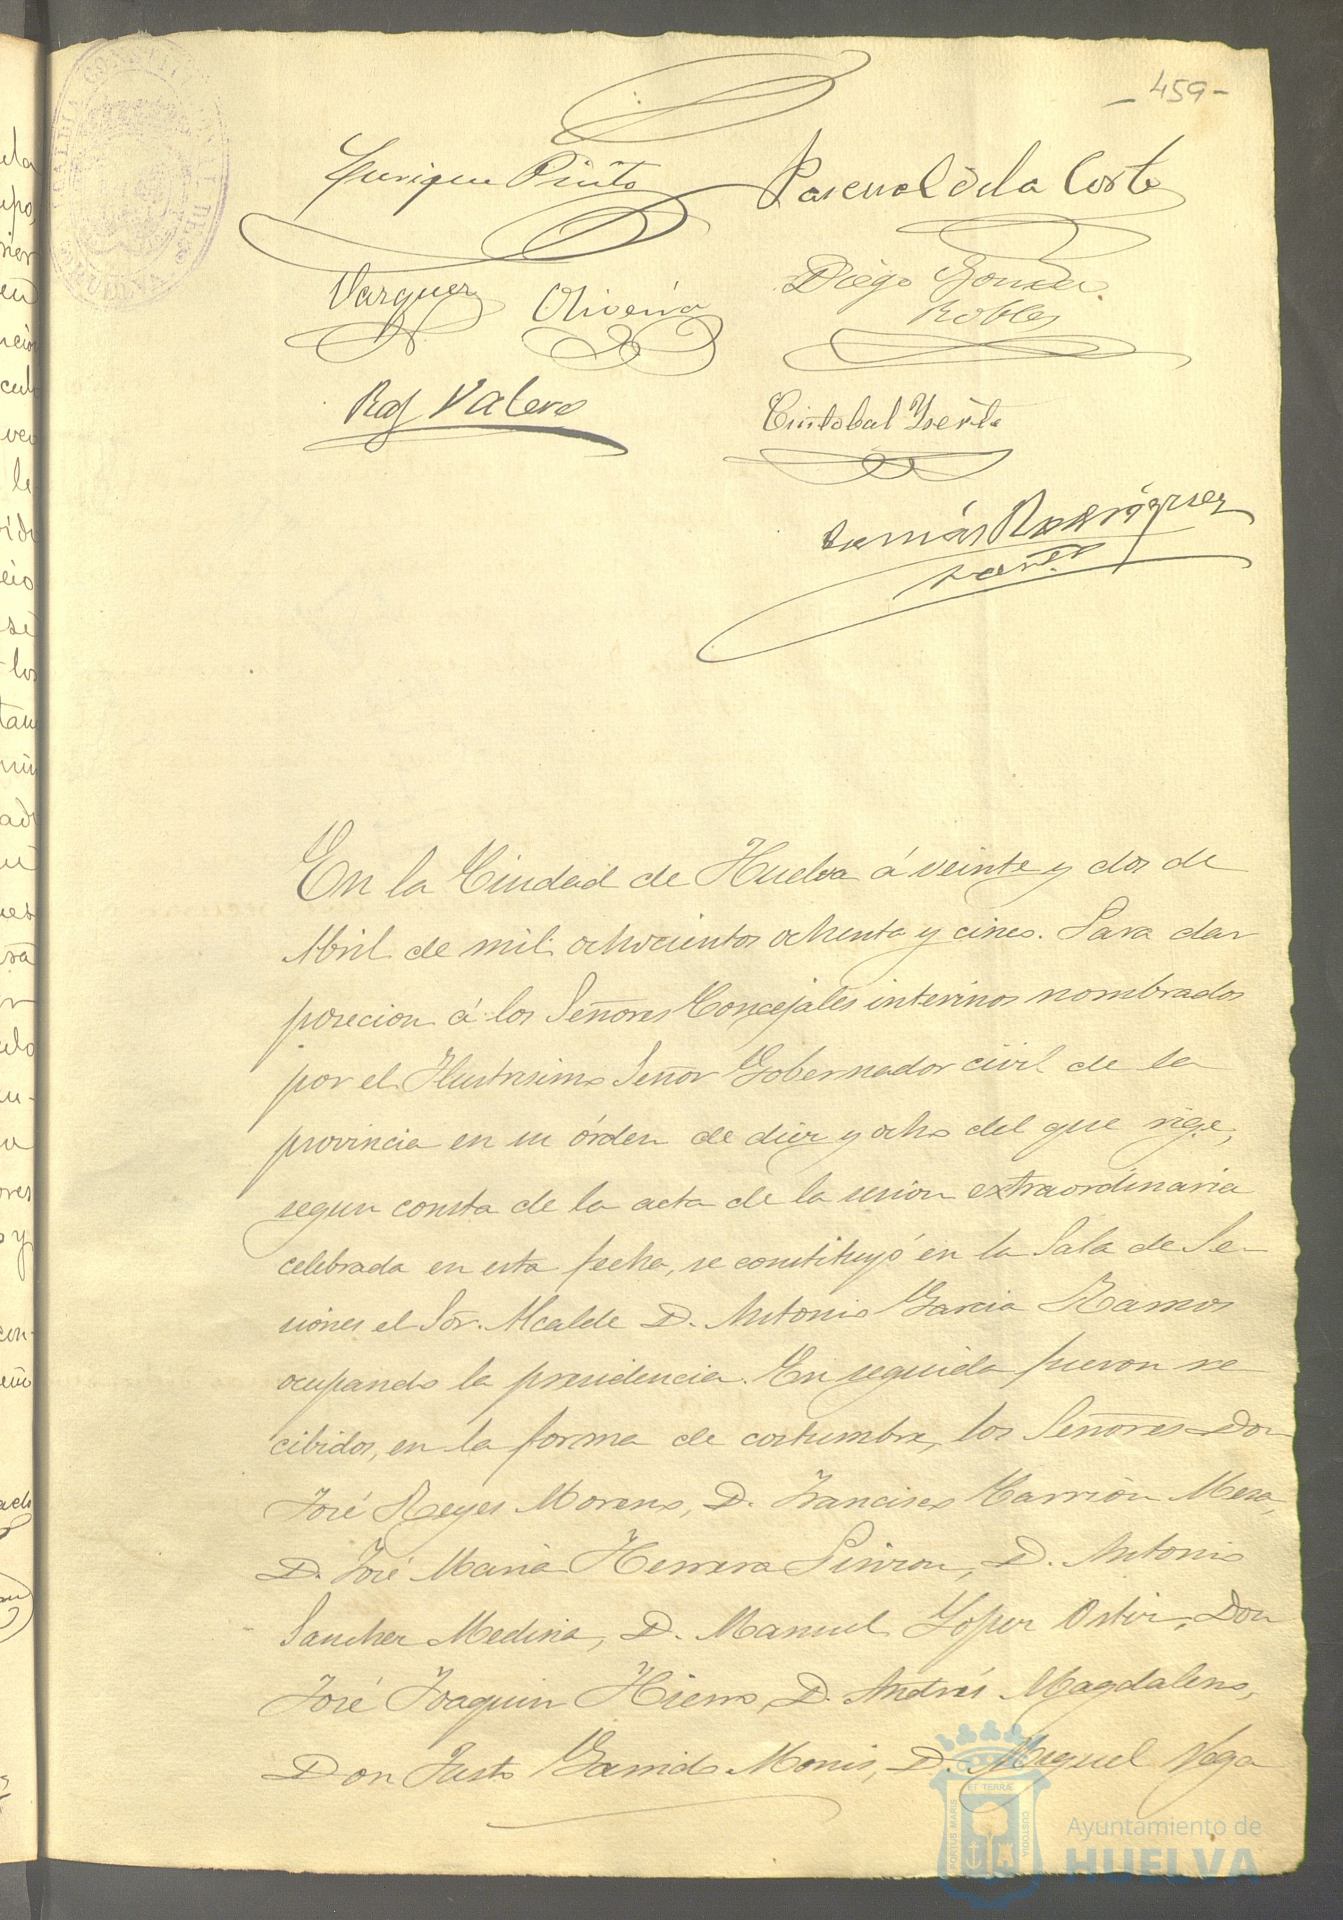 -459-
Enrique Pinto
Pascual de la Corte
Vazquez
Oliveira
Diego Gomez
Robles
Raf Valero
Cristobal
Tomás Rodriguez
En la Ciudad de Huelva á veinte y dos de
Abril de mil ochocientos ochenta y cinco. Para dar
posecion á los Señores Concejales interinos nombrados
por el Ilustrisimo Señor Gobernador civil de la
provincia en su órden de diez y ocho del que rige,
segun consta de la acta de la sesion extraordinaria
celebrada en esta fecha, se constituyó en la Sala de Se-
siones el Sor. Alcalde D. Antonio Garcia Ramos
ocupando la presidencia. En seguida fueron re
cibidos, en la forma de costumbre, los Señores Don
José Reyes Moreno, D. Francisco Carrion Mesa,
D. José Maria Herrera Pinzon, D. Antonio
Sanchez Medina, D. Manuel Lopez Ortiz, Don
José Joaquin Hierro, D. Andrés Magdaleno,
Don Justo Garrido Monis, D. Miguel Vega
PORTUS MARIS
ET TERRÆ
CUSTODIA
Ayuntamiento de
HUELVA